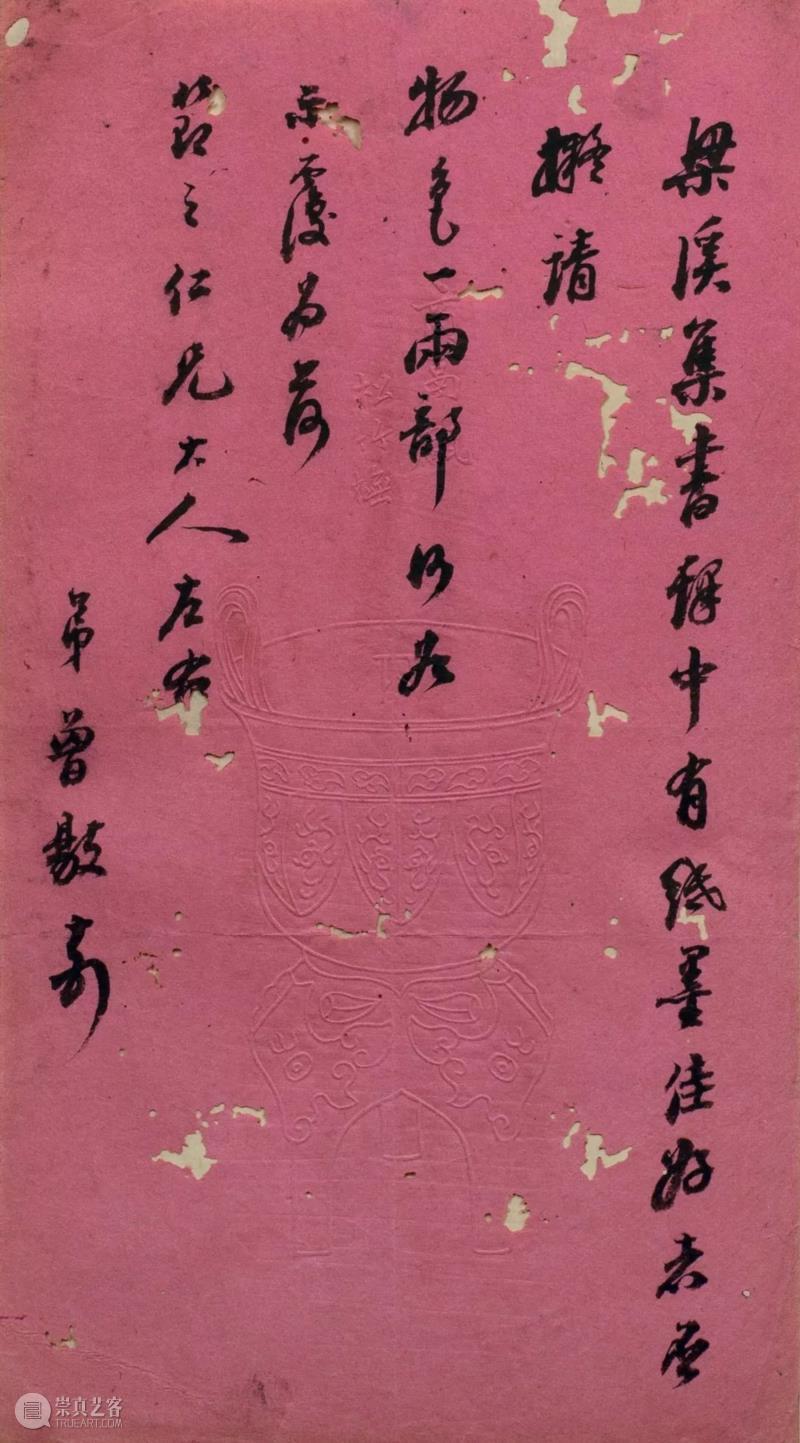 梁溪集書肆中有紙墨佳好者否
擬請
物色一兩部何如
示覆為荷
節之仁兄大人左右
弟曾敭
松竹
崇真艺客
TRUEART.COM